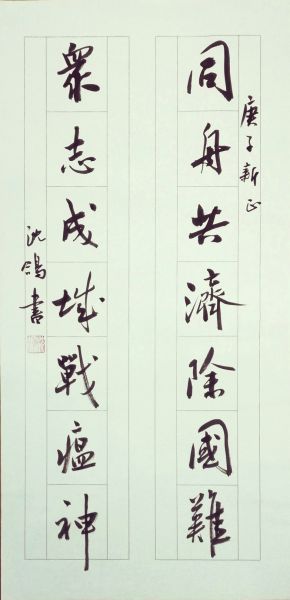 庚子新正
同舟共濟除國難
眾志成城戰瘟神
沈鴿書